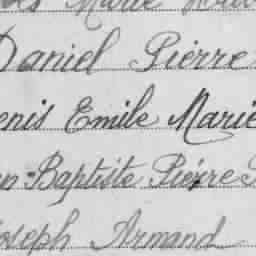 Marie
Daniel Pierre
enis Emile Marie
n-Baptiste Pierre
oseph Armand